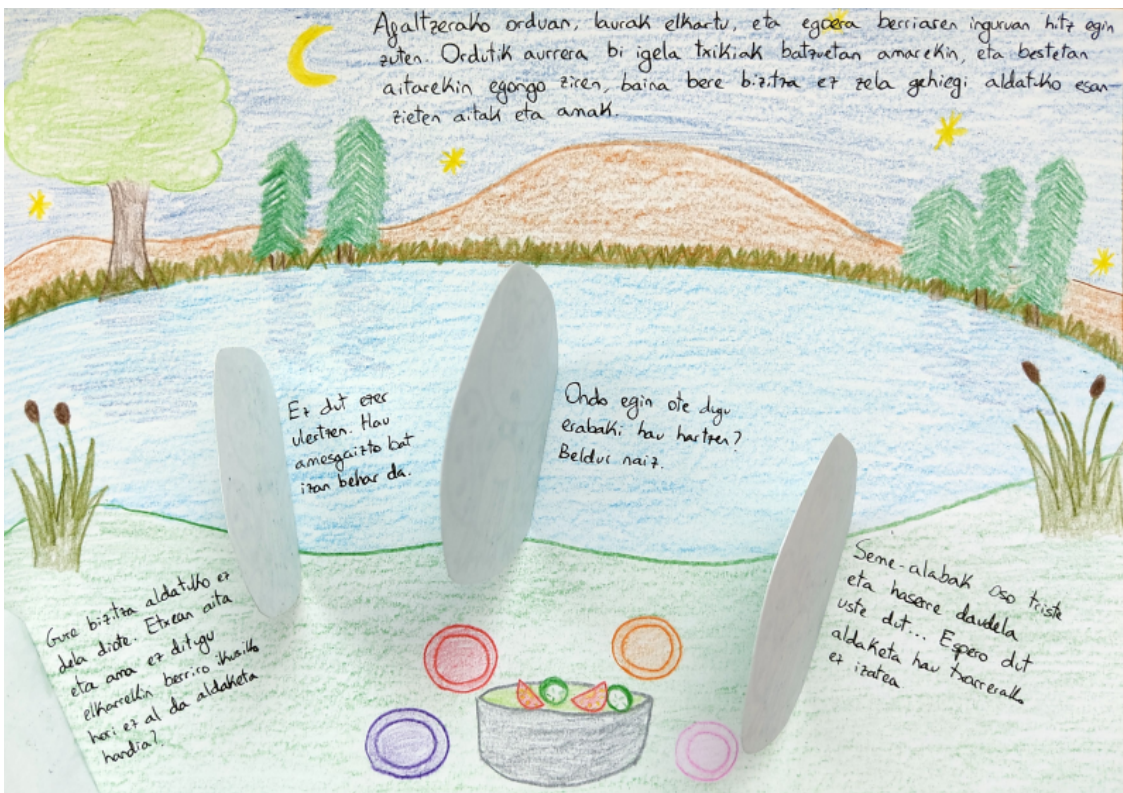 Afaltzerako orduan, laurak elkartu, eta egoera berriaren inguruan hitz egin
zuten. Ordutik aurrera bi igela txikiak batzuetan amarekin, eta bestetan
aitarekin egongo ziren, baina bere bizitza ez zela gehiegi aldatuko esan
zieten aitak eta amak.
Ez dut ezer
ulertzen. Hau
amesgaizto bat
izan behar da.
Ondo egin ote dugu
erabaki hau hartzen?
Beldur naiz.
Gure bizitza aldatuko ez
dela diote. Etxean aita
eta ama ez ditugu
elkarrekin berriro ikusiko
hori ez al da aldaketa
handia?
Seme-alabak oso triste
eta haserre daudela
uste dut... Espero dut
aldaketa hau txarrerako
ez izatea